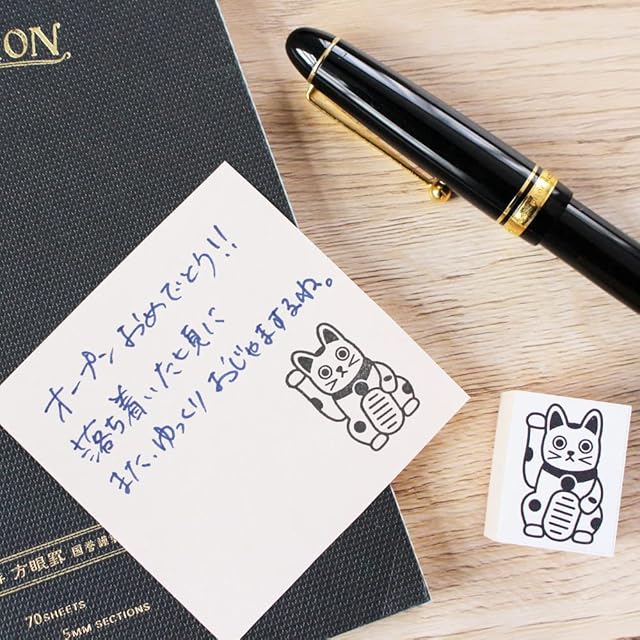 ION
オープンおめでとう!!
落ち着いた頃に
また、ゆっくりおじゃまするね。
方眼罫
70 SHEETS
5MM SECTIONS